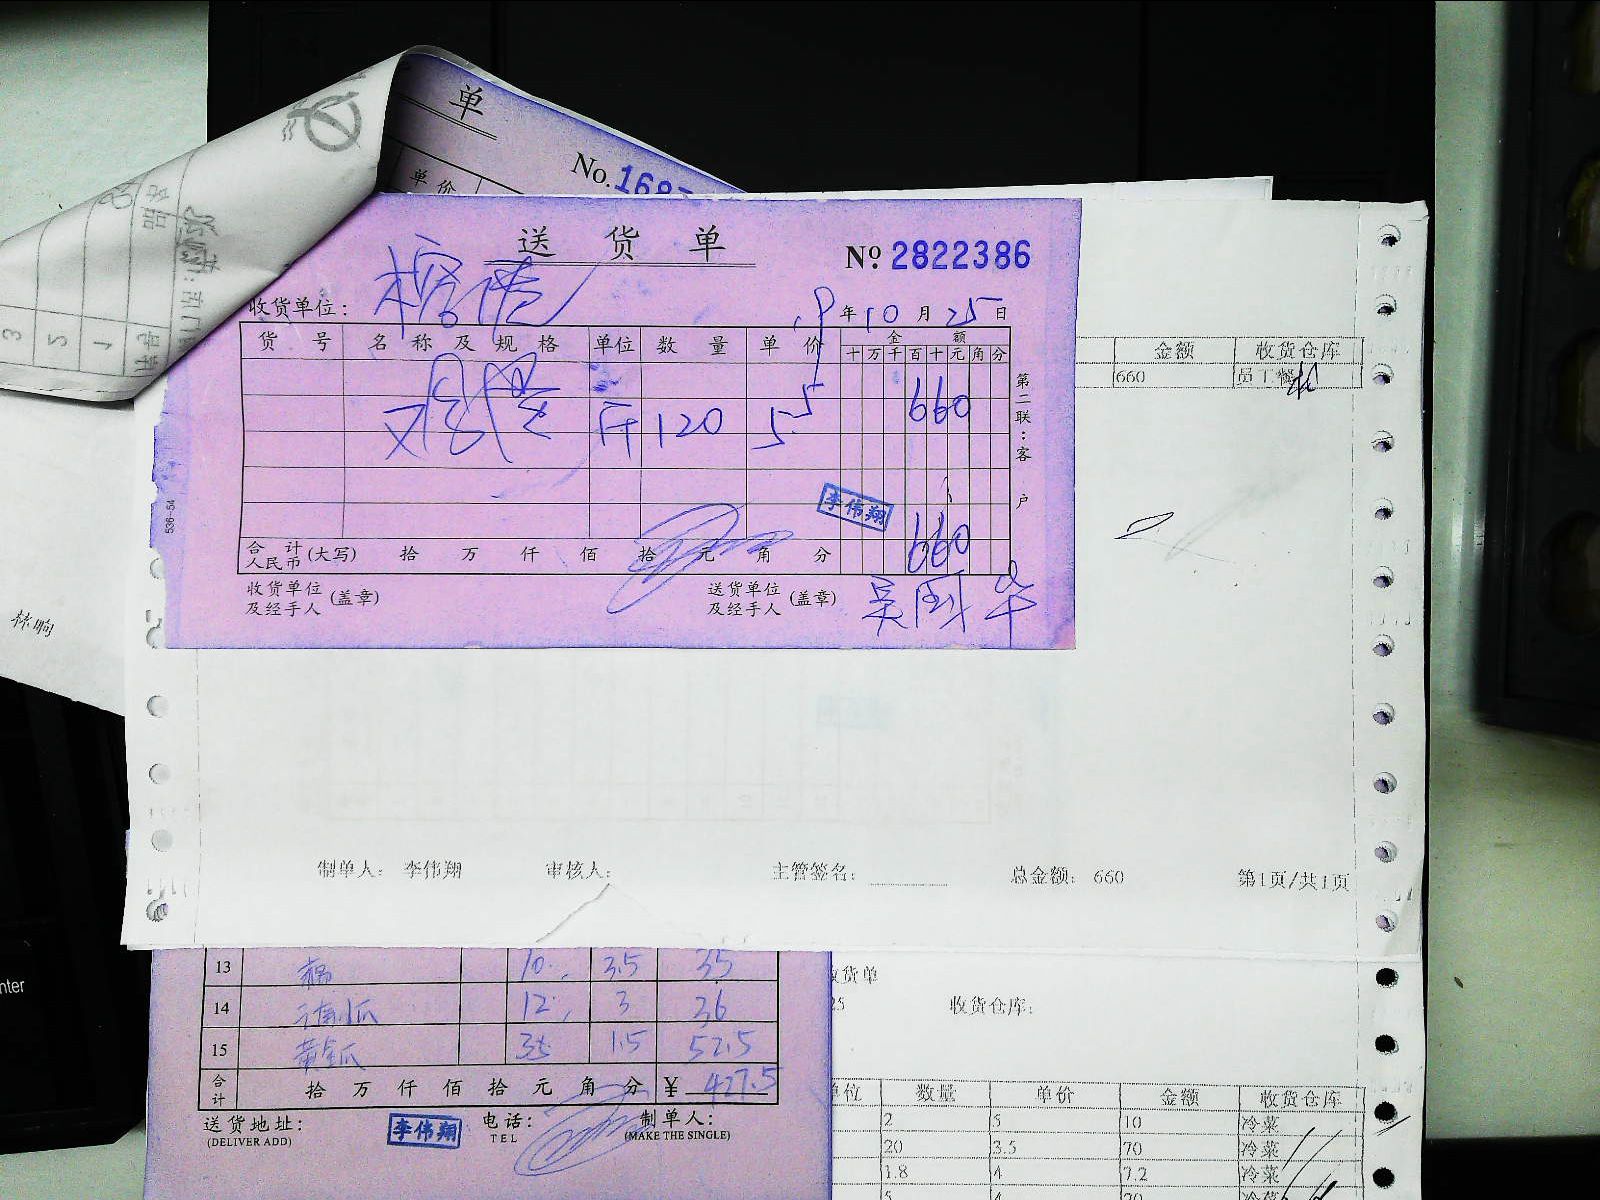 单
No.168
单价
送 货 单
№ 2822386
收货单位:
19年10月25日
货 号 名称及规格 单位 数 量 单 价 金 额
十万千百十元角分
斤 120 5.5 660
第二联:客户
李伟翔
660
合 计 人民币(大写) 拾 万 仟 佰 拾 元 角 分
收货单位及经手人(盖章) 送货单位及经手人(盖章) 吴国华
536-54
金额 收货仓库
660 员工餐
制单人: 李伟翔 审核人: 主管签名: 总金额: 660 第1页/共1页
13 10 3.5 35
14 12 3 36
15 黄金瓜 35 1.5 52.5
合计 拾 万 仟 佰 拾 元 角 分 ¥ 427.5
送货地址: 李伟翔 电话: 制单人:
(DELIVER ADD) TEL (MAKE THE SINGLE)
货单
25 收货仓库:
单位 数量 单价 金额 收货仓库
2 5 10 冷菜
20 3.5 70 冷菜
1.8 4 7.2 冷菜
5 4 20 冷菜
nter